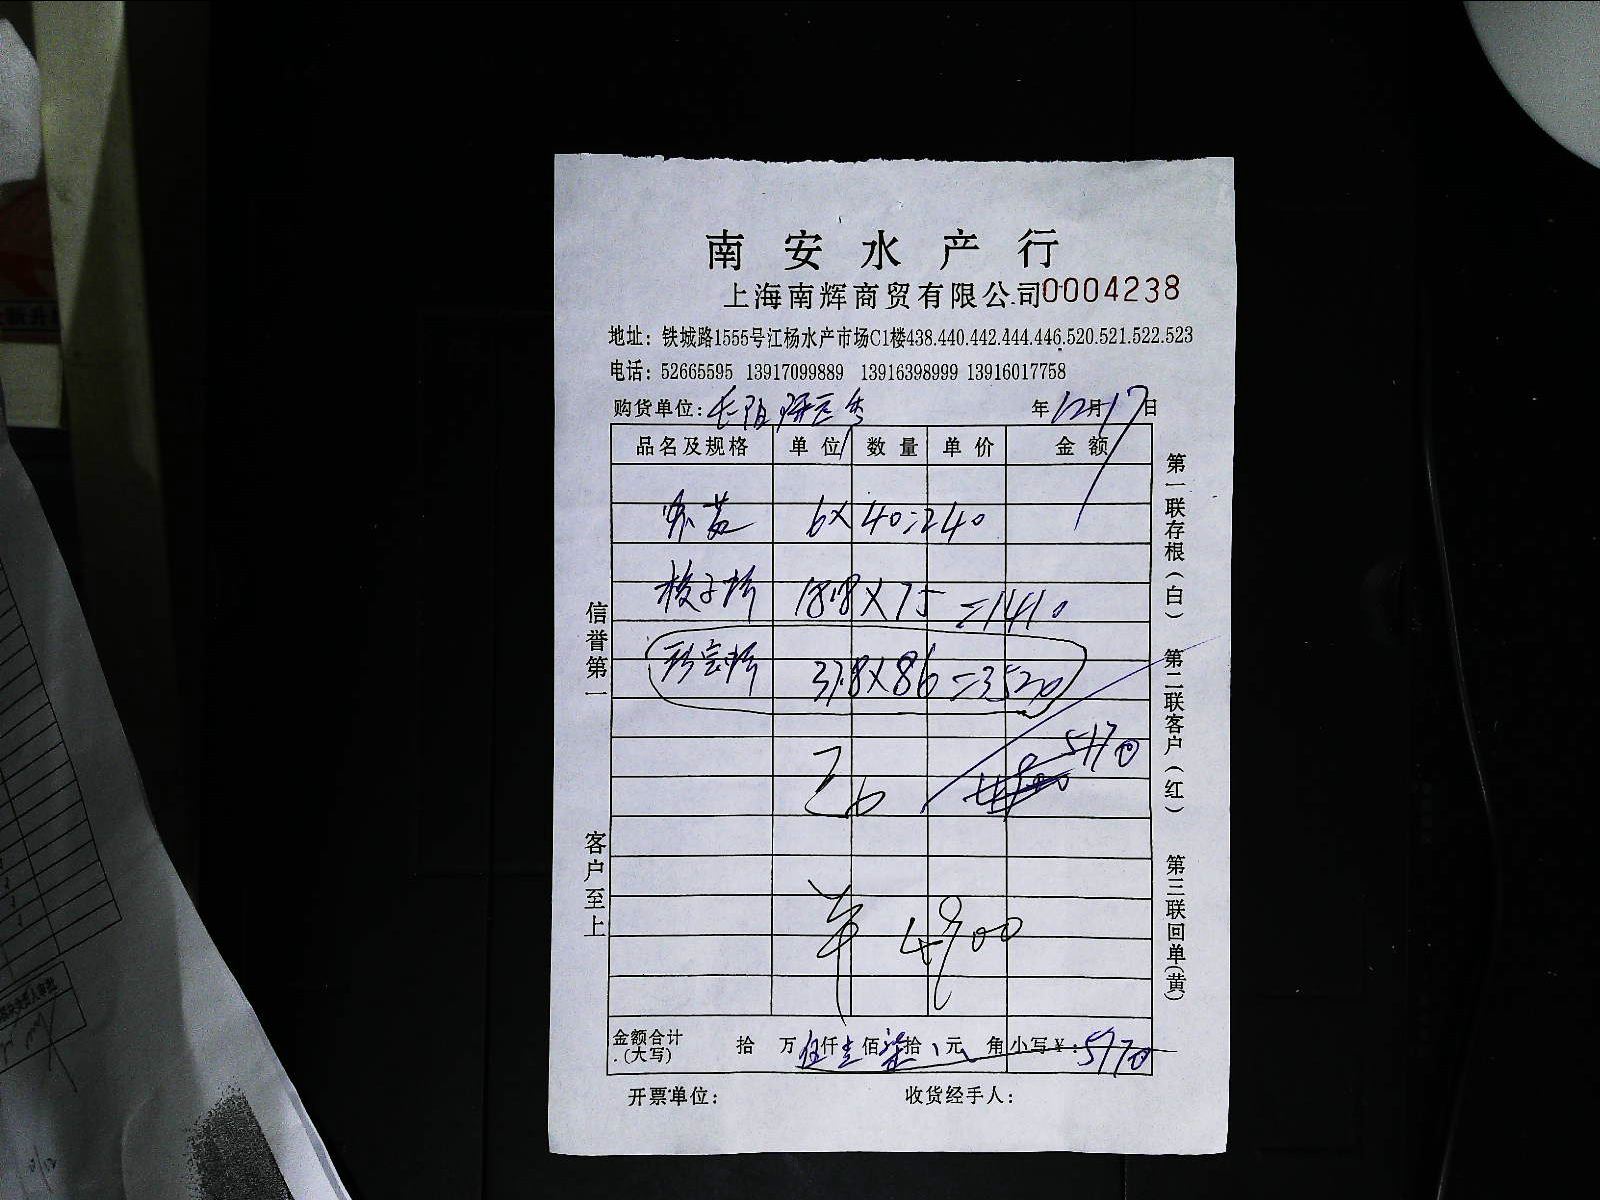 南安水产行
上海南辉商贸有限公司0004238
地址：铁城路1555号江杨水产市场C1楼438.440.442.444.446.520.521.522.523
电话：52665595 13917099889 13916398999 13916017758
购货单位： 年12月17日
品名及规格 单位 数量 单价 金额
6×40=240
18.8×75=1410
37.8×86=3520
5170
4900
金额合计（大写） 拾 万伍仟壹佰柒拾 元 角 小写￥：5170
开票单位： 收货经手人：
信誉第一 客户至上
第一联存根（白） 第二联客户（红） 第三联回单（黄）